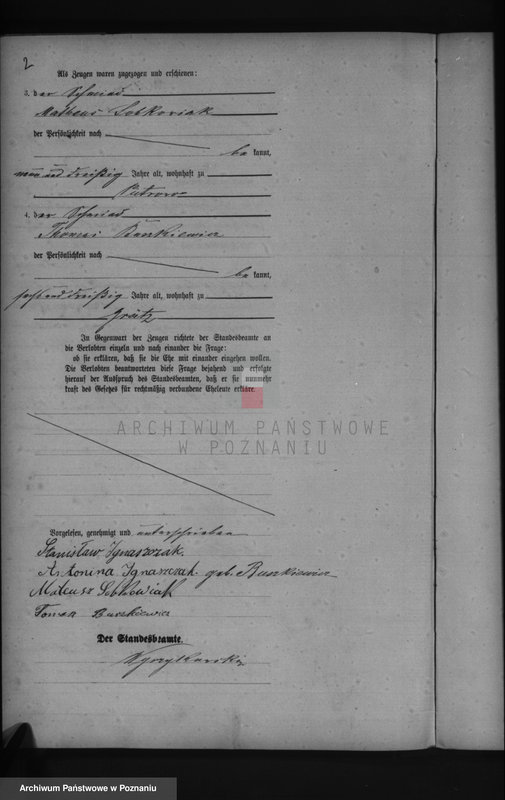 2
Als Zeugen waren zugezogen und erschienen:
3. der Schmied
Matheus Sobkowiak
der Persönlichkeit nach
bekannt,
neun und dreißig Jahre alt, wohnhaft zu
4. der Schmied
Thomas Buszkiewicz
der Persönlichkeit nach
bekannt,
sechs und dreißig Jahre alt, wohnhaft zu
Grätz
In Gegenwart der Zeugen richtete der Standesbeamte an
die Verlobten einzeln und nach einander die Frage:
ob sie erklären, daß sie die Ehe mit einander eingehen wollen.
Die Verlobten beantworteten diese Frage bejahend und erfolgte
hierauf der Ausspruch des Standesbeamten, daß er sie nunmehr
kraft des Gesetzes für rechtmäßig verbundene Eheleute erkläre.
ARCHIWUM PAŃSTWOWE
W POZNANIU
Vorgelesen, genehmigt und unterschrieben
Stanisław Ignaszczak.
Antonina Ignaszczak geb. Buszkiewicz
Mateusz Sobkowiak
Tomasz Buszkiewicz
Der Standesbeamte.
Archiwum Państwowe w Poznaniu